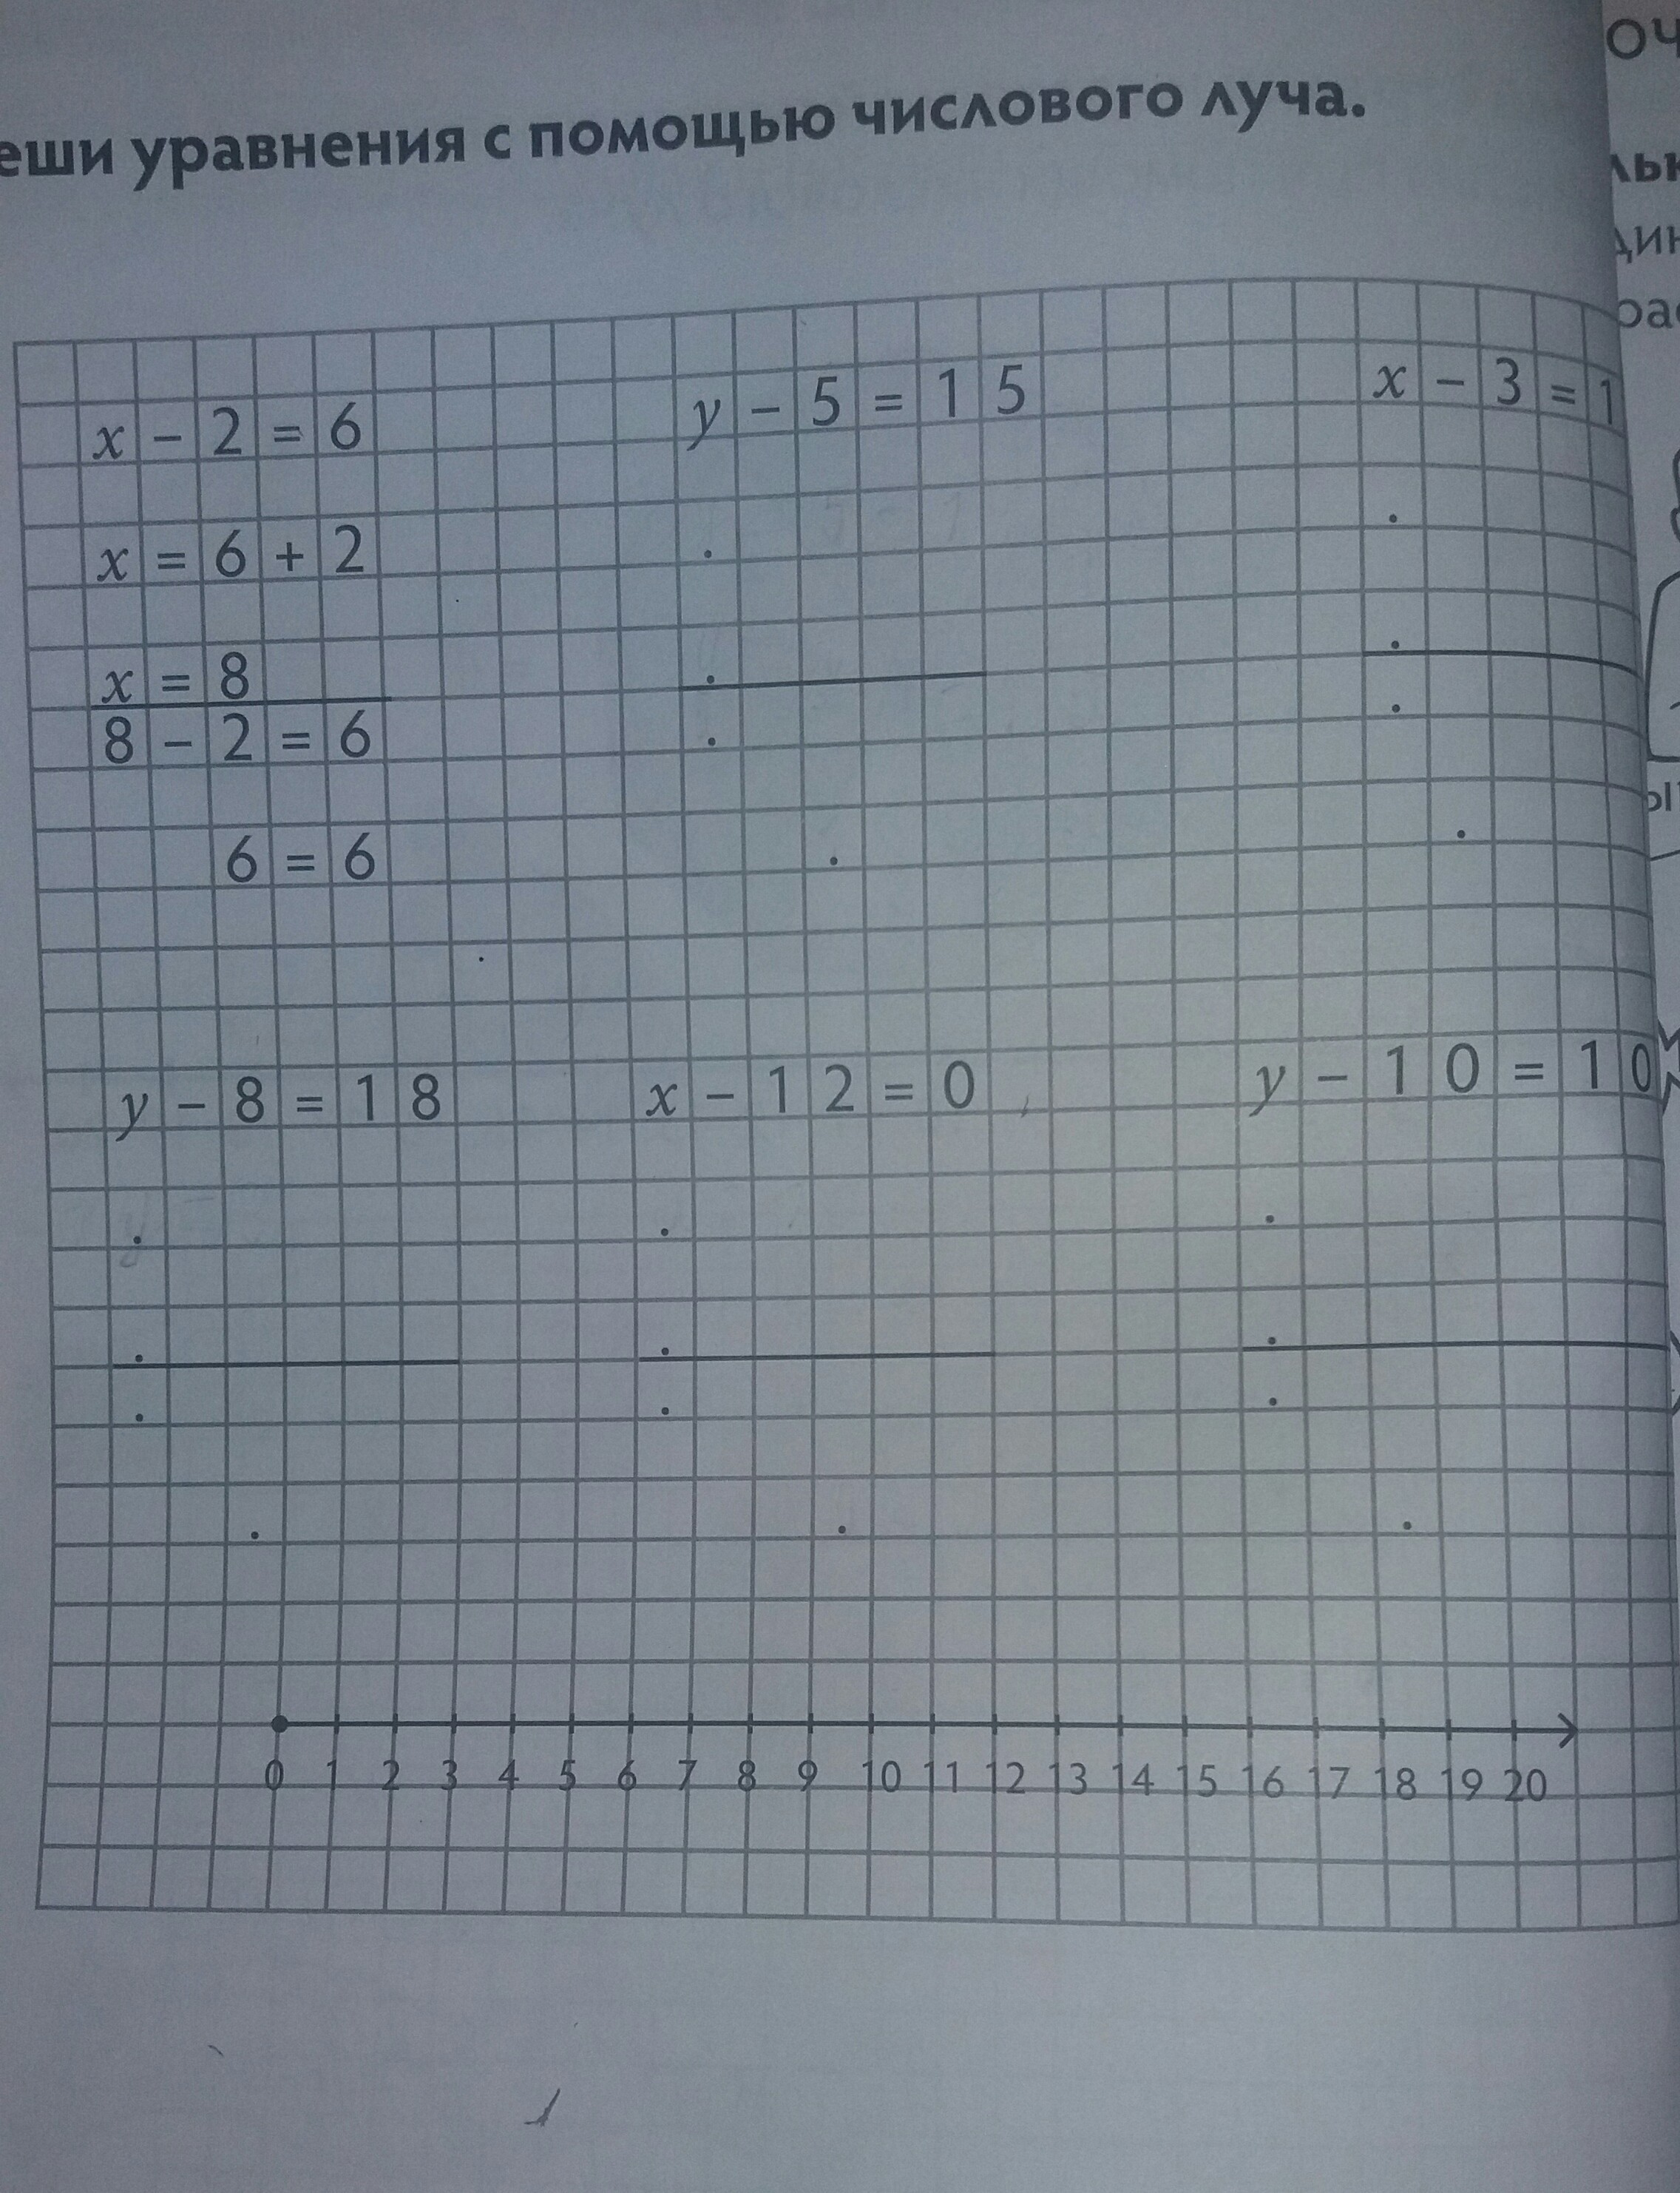 еши уравнения с помощью числового луча.
x – 2 = 6
x = 6 + 2
x = 8
8 – 2 = 6
6 = 6
y – 5 = 15
x – 3 = 1
y – 8 = 18
x – 12 = 0
y – 10 = 10
0 1 2 3 4 5 6 7 8 9 10 11 12 13 14 15 16 17 18 19 20